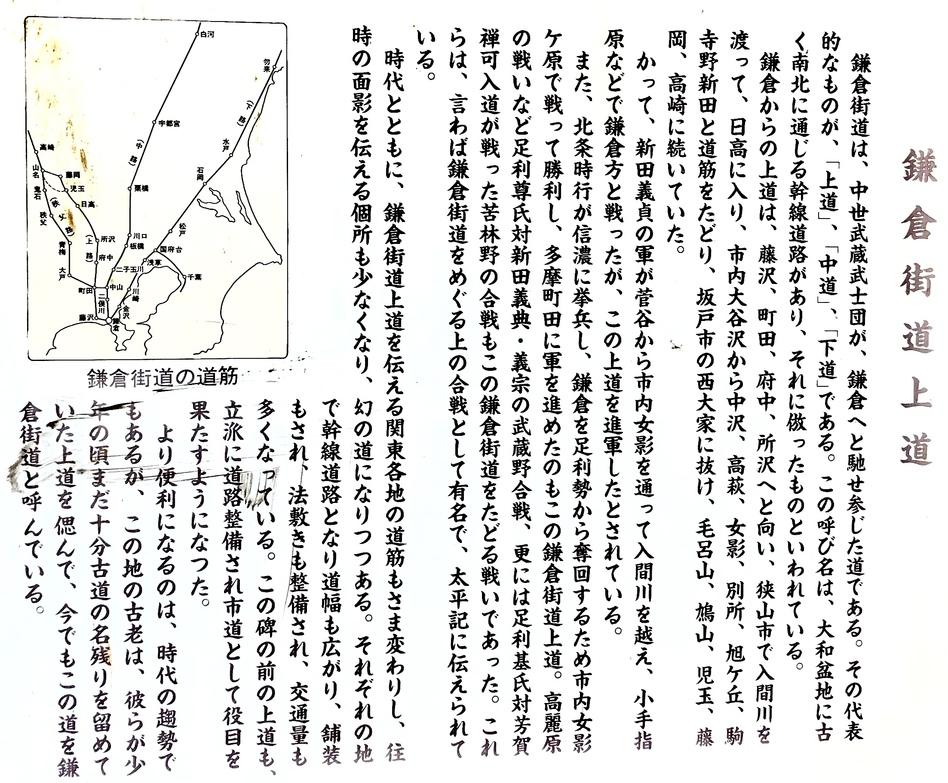 鎌倉街道上道
鎌倉街道は、中世武蔵武士団が、鎌倉へと馳せ参じた道である。その代表
的なものが、「上道」、「中道」、「下道」である。この呼び名は、大和盆地に古
く南北に通じる幹線道路があり、それに倣ったものといわれている。
鎌倉からの上道は、藤沢、町田、府中、所沢へと向い、狭山市で入間川を
渡って、日高に入り、市内大谷沢から中沢、高萩、女影、別所、旭ケ丘、駒
寺野新田と道筋をたどり、坂戸市の西大家に抜け、毛呂山、鳩山、児玉、藤
岡、高崎に続いていた。
かって、新田義貞の軍が菅谷から市内女影を通って入間川を越え、小手指
原などで鎌倉方と戦ったが、この上道を進軍したとされている。
また、北条時行が信濃に挙兵し、鎌倉を足利勢から奪回するため市内女影
ケ原で戦って勝利し、多摩町田に軍を進めたのもこの鎌倉街道上道。高麗原
の戦いなど足利尊氏対新田義典・義宗の武蔵野合戦、更には足利基氏対芳賀
禅可入道が戦った苦林野の合戦もこの鎌倉街道をたどる戦いであった。これ
らは、言わば鎌倉街道をめぐる上の合戦として有名で、太平記に伝えられて
いる。
時代とともに、鎌倉街道上道を伝える関東各地の道筋もさま変わりし、往
時の面影を伝える個所も少なくなり、幻の道になりつつある。それぞれの地
で幹線道路となり道幅も広がり、舗装
もされ、法敷きも整備され、交通量も
多くなっている。この碑の前の上道も、
立派に道路整備され市道として役目を
果たすようになつた。
より便利になるのは、時代の趨勢で
もあるが、この地の古老は、彼らが少
年の頃まだ十分古道の名残りを留めて
いた上道を偲んで、今でもこの道を鎌
倉街道と呼んでいる。
白河
勿来
(下路)
宇都宮
(中路)
水戸
石岡
高崎
山名
藤岡
鬼石
児玉
栗橋
(秩父路)
日高
秩父
松戸
川口
所沢
板橋
国府台
(上路)
青梅
府中
浅草
二子玉川
千葉
大戸
町田
中山
川崎
二俣川
金沢
藤沢
鎌倉
鎌倉街道の道筋